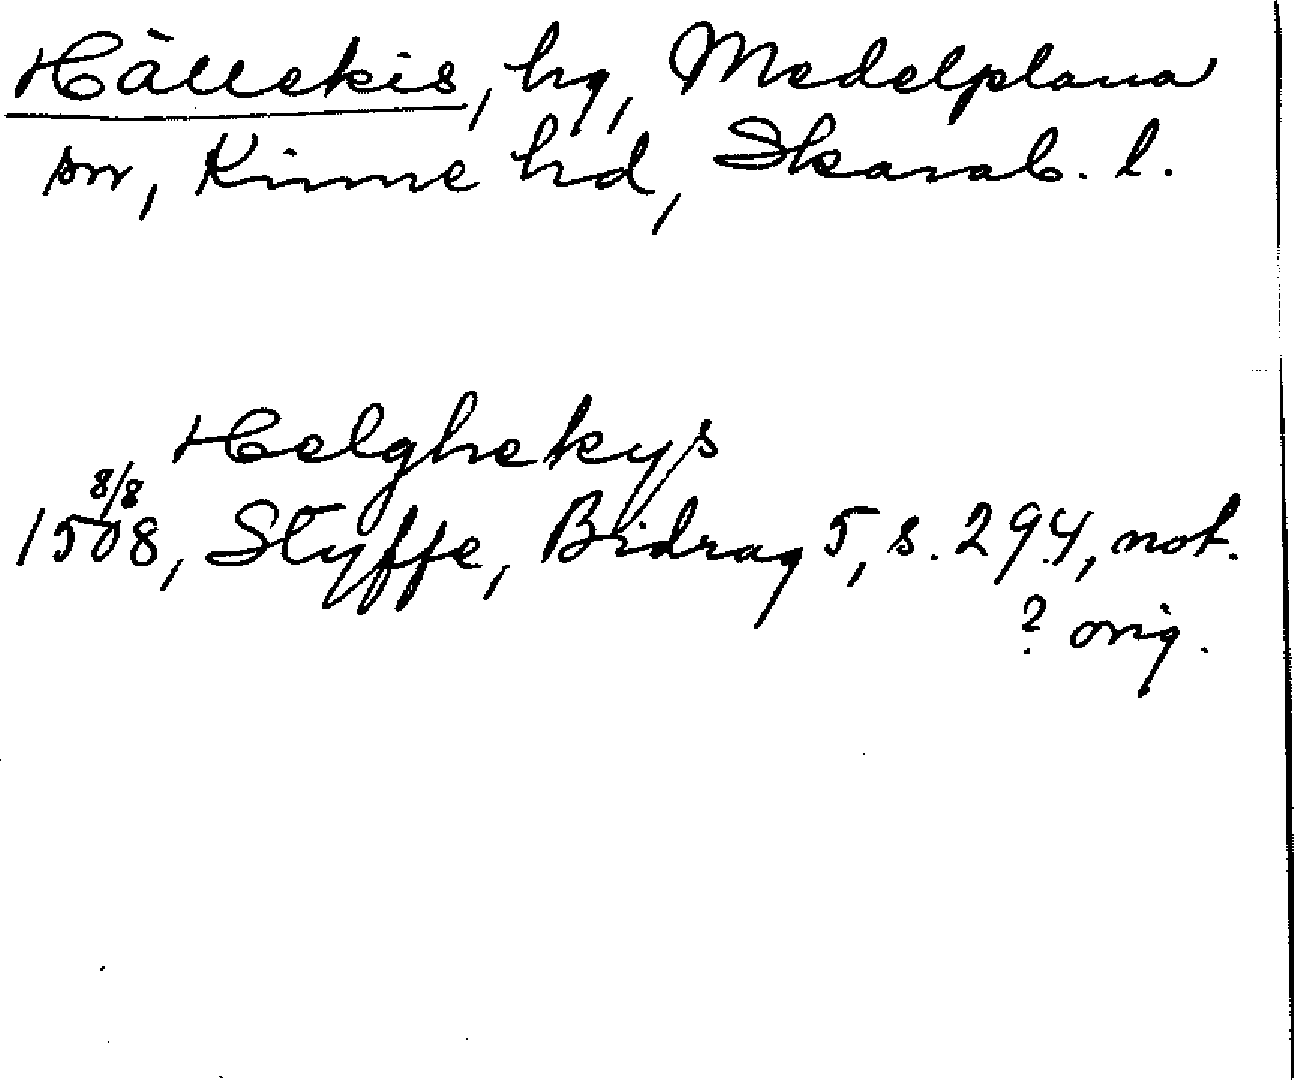 Hällekis, hg, Medelplana
sn, Kinne hd, Skarab. l.
Helghekys
8/8
1508, Styffe, Bidrag 5, s. 294, not.
? orig.